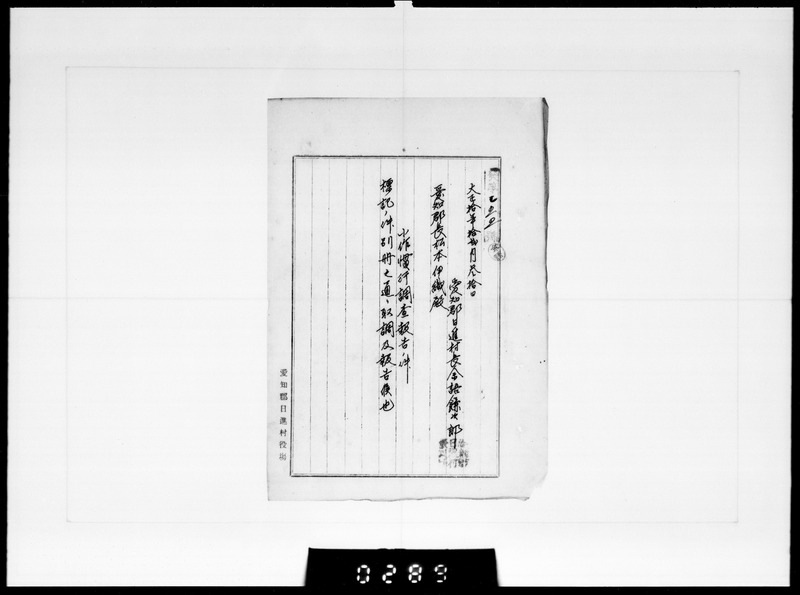 大正拾年拾弐月参拾日
愛知郡日進村長余語鎌次郎
愛知郡長松本伊織殿
小作慣行調査報告ノ件
標記ノ件別冊之通リ取調及報告候也
愛知郡日進村役場
0289